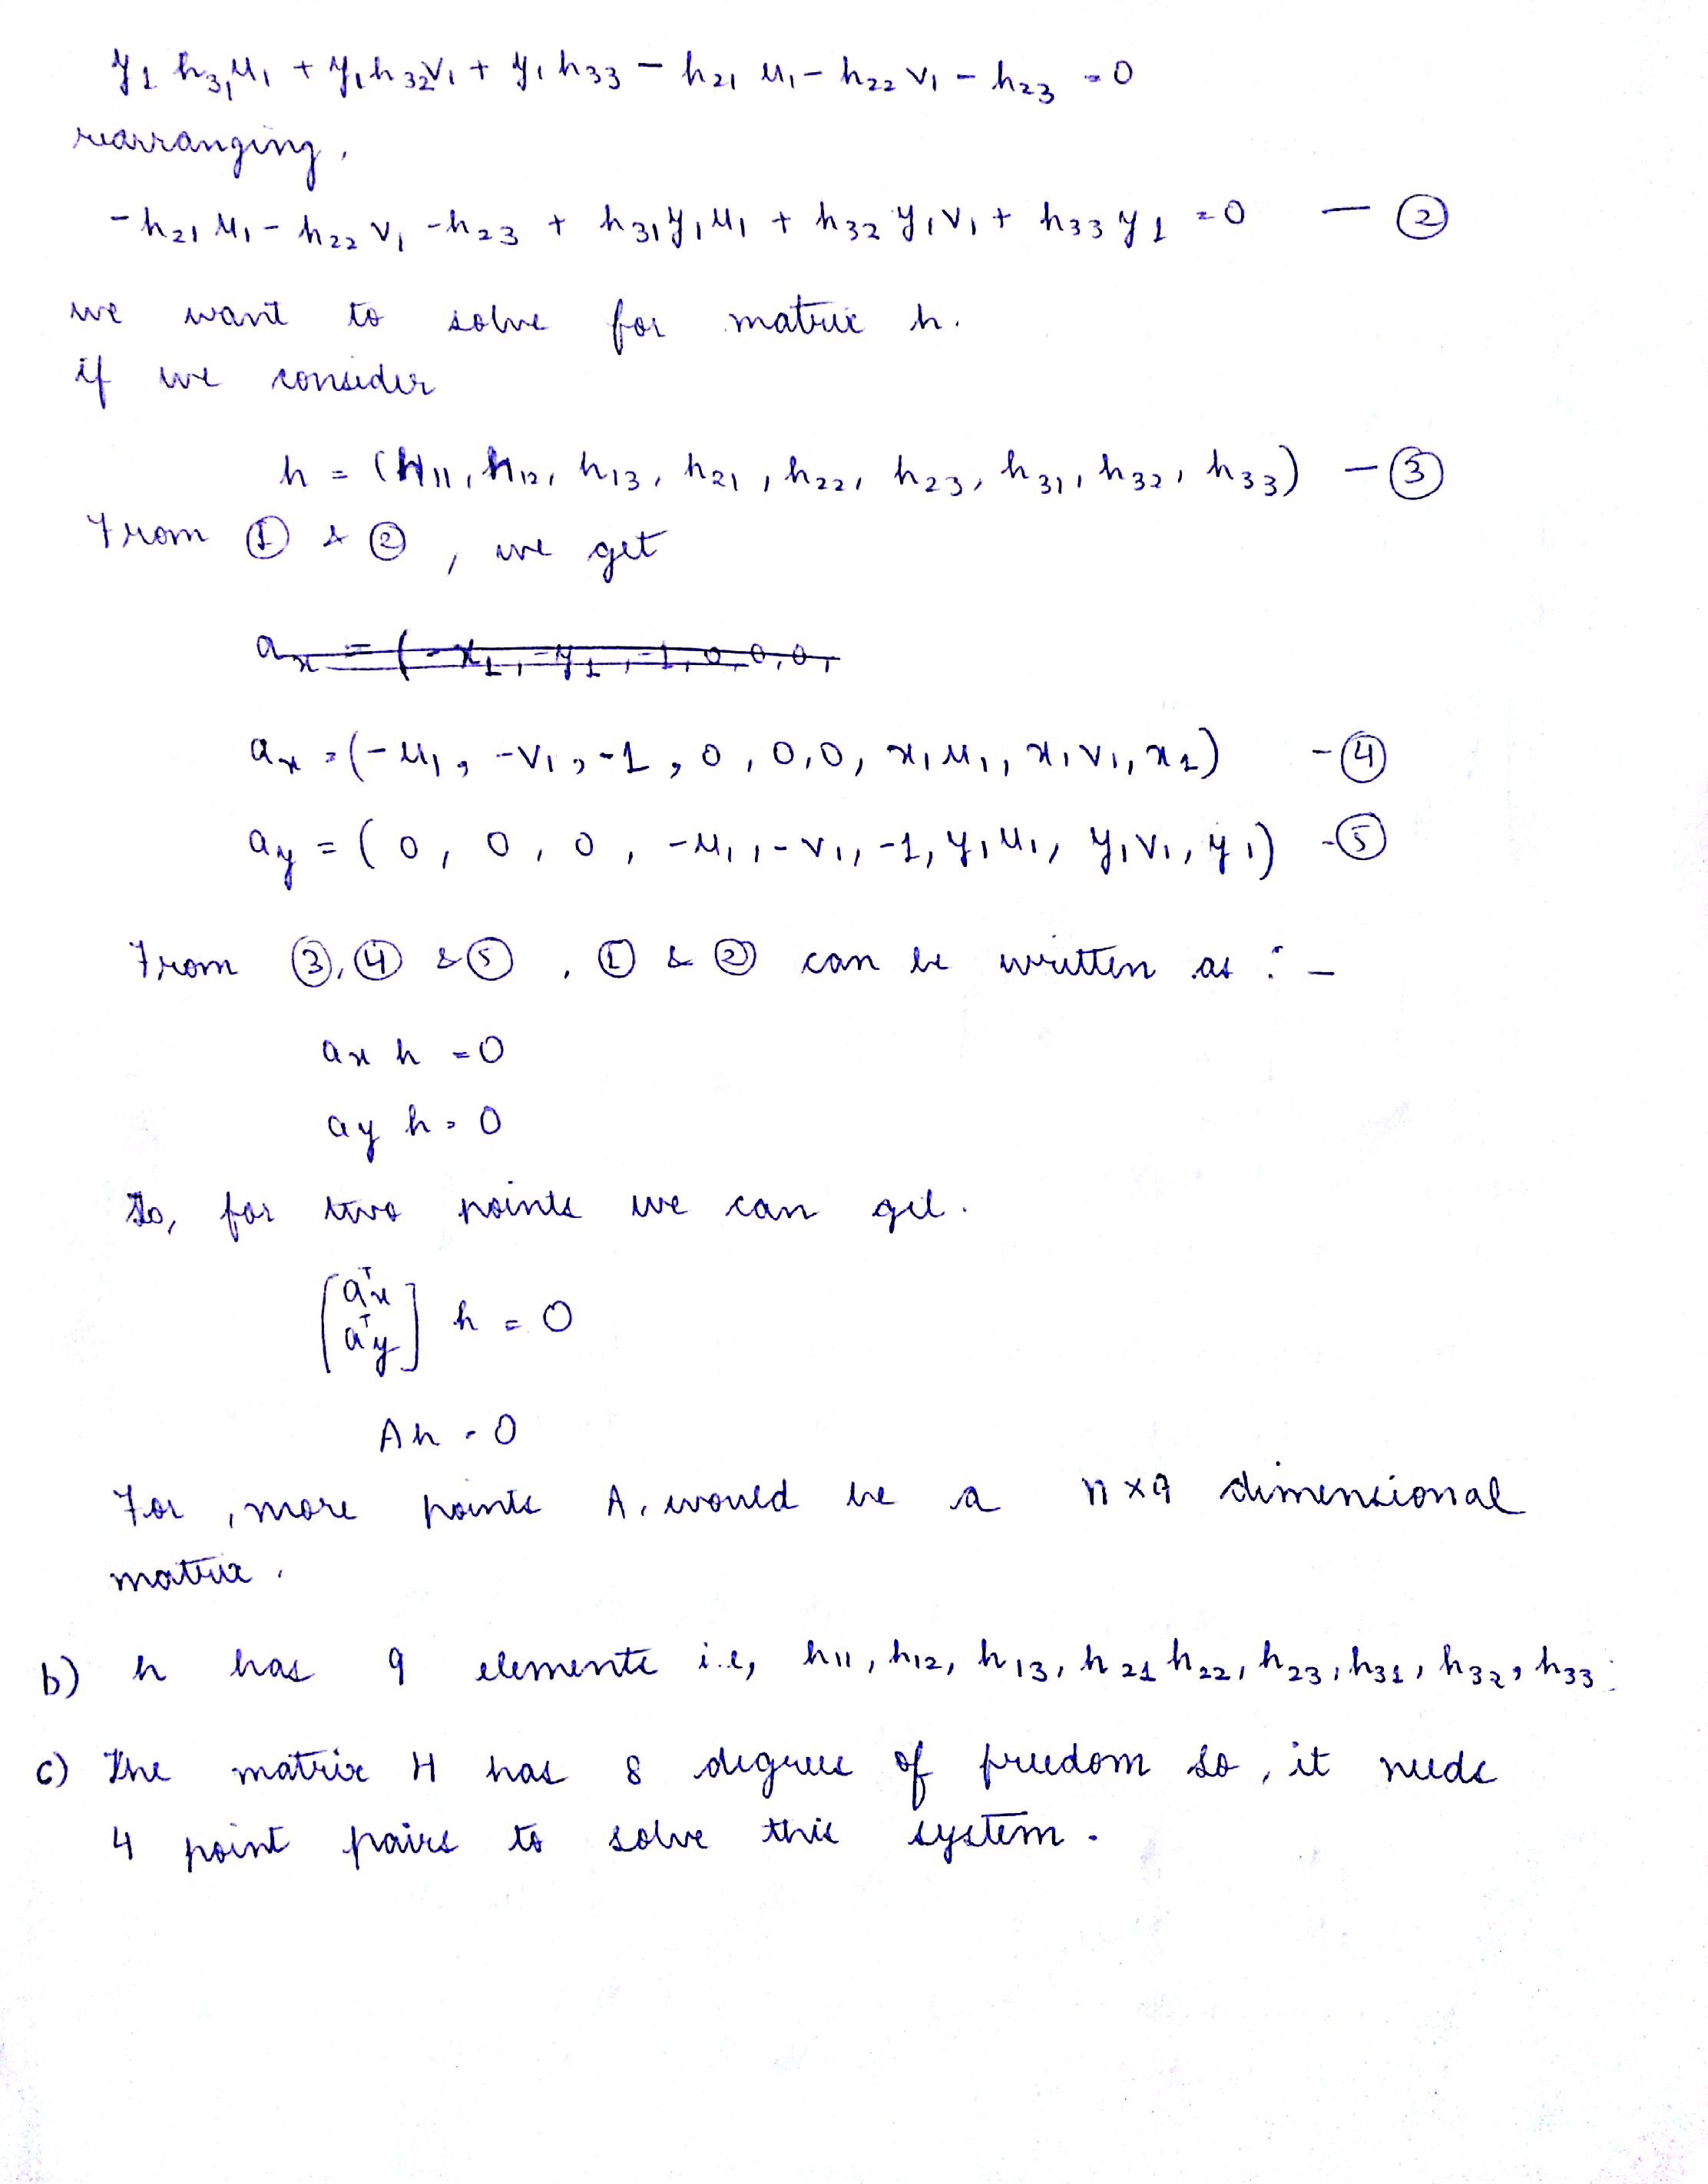 y₁ h₃₁u₁ + y₁h₃₂v₁ + y₁h₃₃ − h₂₁ u₁ − h₂₂ v₁ − h₂₃ = 0
rearranging,
−h₂₁ u₁ − h₂₂ v₁ −h₂₃ + h₃₁y₁u₁ + h₃₂ y₁v₁ + h₃₃ y₁ = 0 — ②
we want to solve for matrix h.
if we consider
h = (h₁₁, h₁₂, h₁₃, h₂₁, h₂₂, h₂₃, h₃₁, h₃₂, h₃₃) — ③
From ① & ②, we get
aₓ = (−x₁, −y₁, −1, 0, 0, 0,
aₓ = (−u₁, −v₁, −1, 0, 0, 0, x₁u₁, x₁v₁, x₁) − ④
a_y = (0, 0, 0, −u₁, −v₁, −1, y₁u₁, y₁v₁, y₁) − ⑤
From ③, ④ & ⑤, ① & ② can be written as : −
aₓ h = 0
a_y h = 0
So, for two points we can get.
[aᵀₓ
aᵀ_y] h = 0
Ah = 0
For, more points A, would be a n×9 dimensional
matrix.
b) h has 9 elements i.e, h₁₁, h₁₂, h₁₃, h₂₁ h₂₂, h₂₃, h₃₁, h₃₂, h₃₃.
c) The matrix H has 8 degrees of freedom so, it needs
4 point pairs to solve this system.